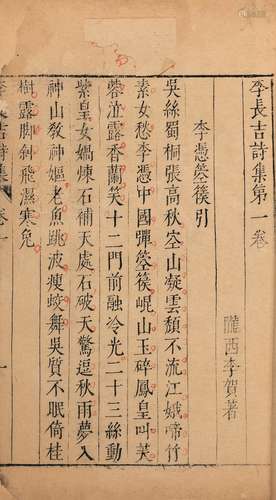 李長吉詩集第一卷
隴西李賀著
李憑箜篌引
吳絲蜀桐張高秋空山凝雲頹不流江娥啼竹
素女愁李憑中國彈箜篌崐山玉碎鳳皇叫芙
蓉泣露香蘭笑十二門前融冷光二十三絲動
紫皇女媧煉石補天處石破天驚逗秋雨夢入
神山敎神嫗老魚跳波瘦蛟舞吳質不眠倚桂
樹露脚斜飛濕寒兔